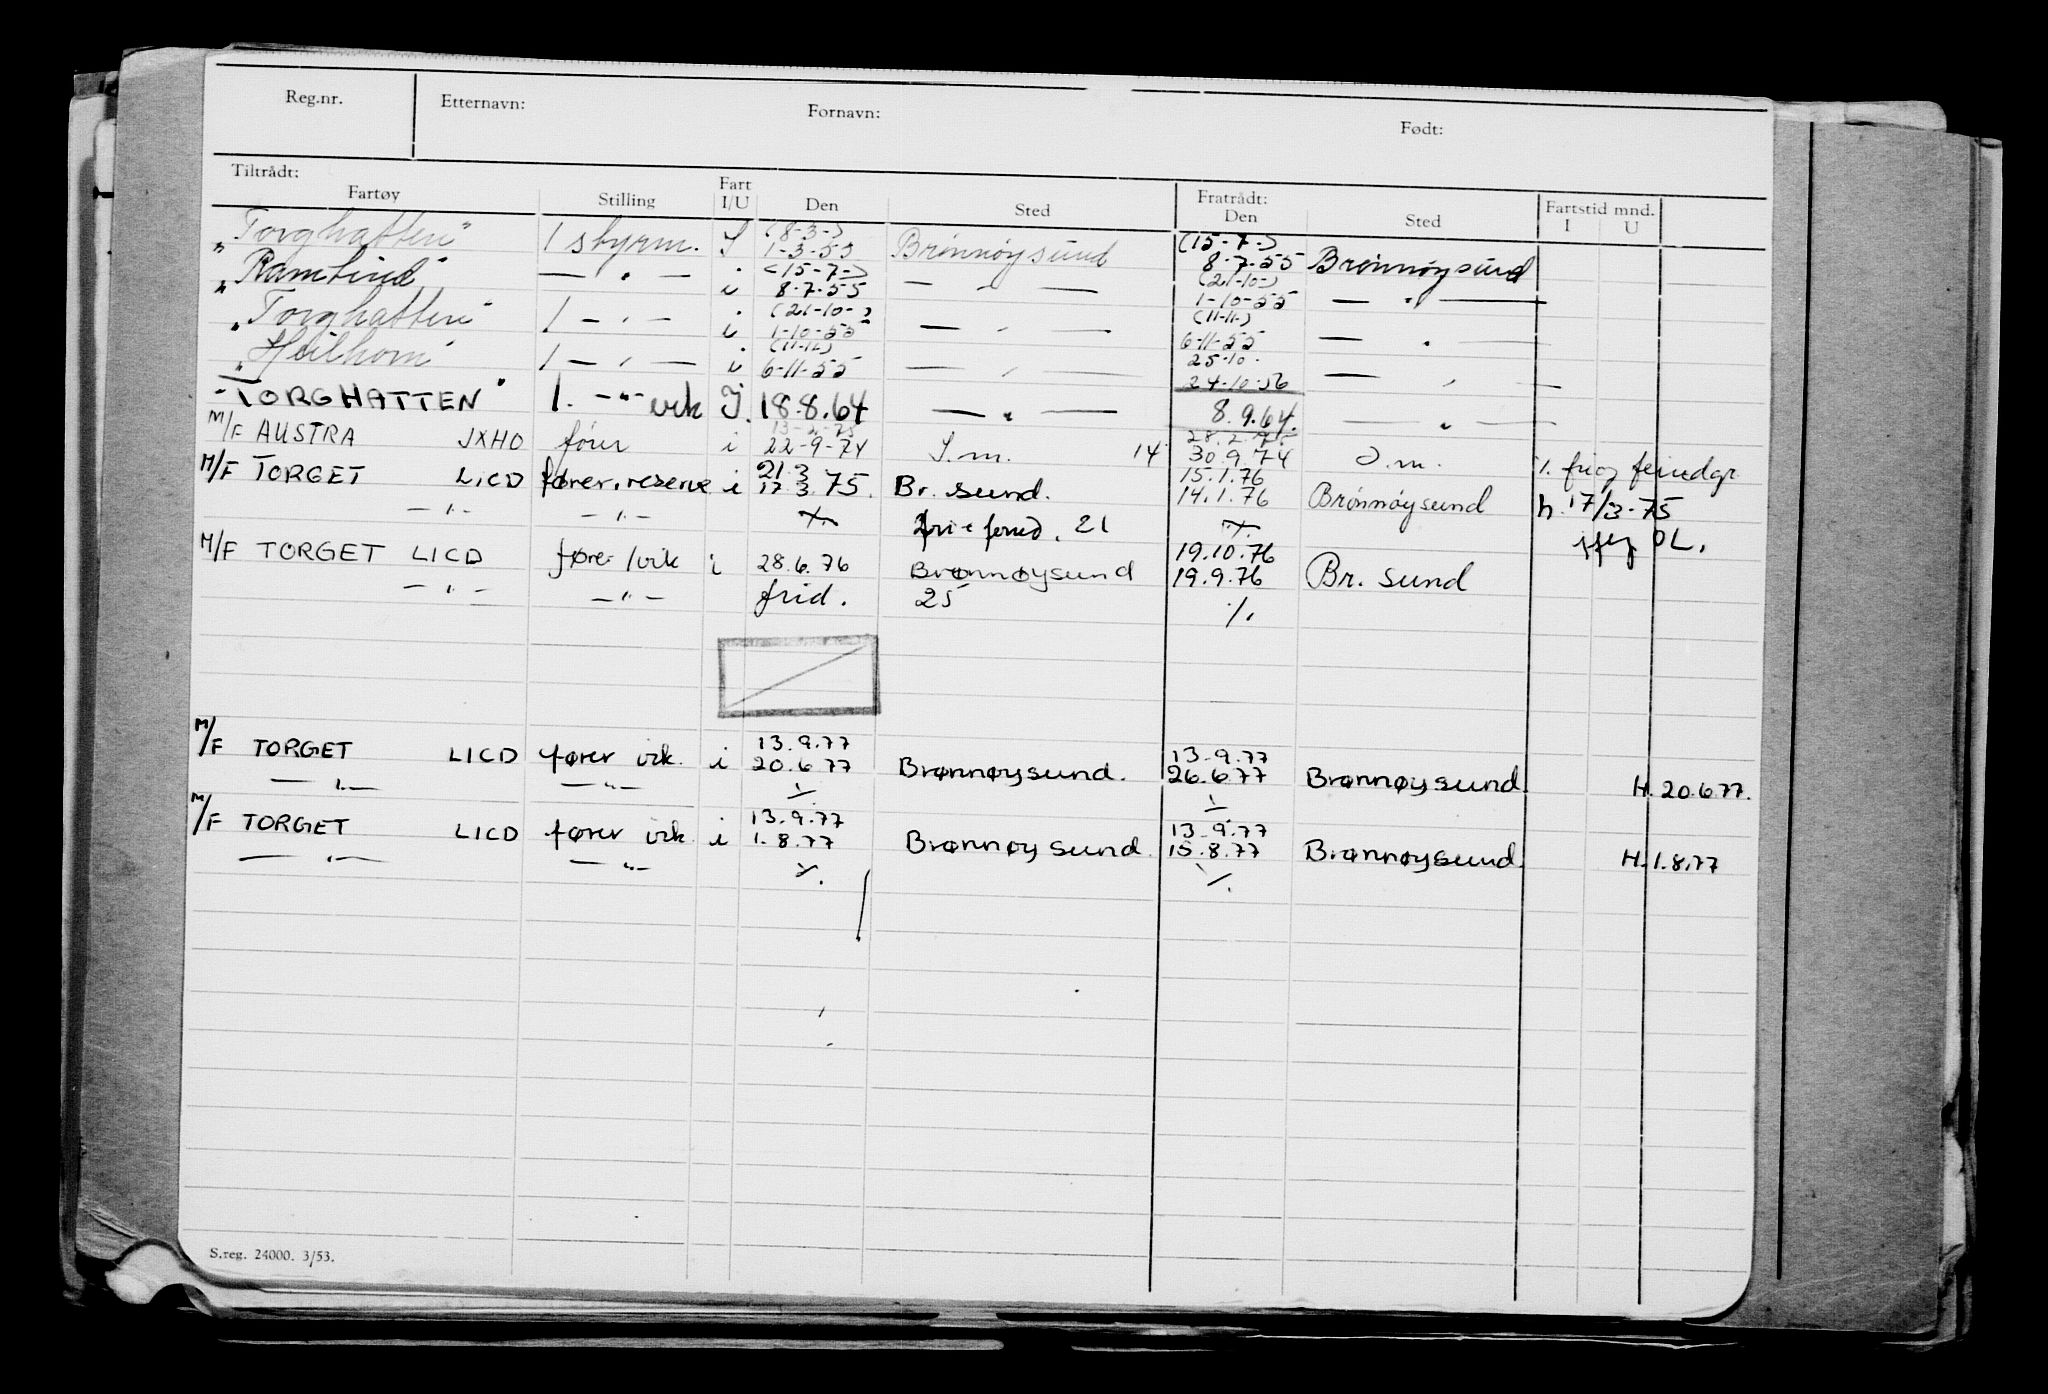 Reg.nr. Etternavn: Fornavn: Født:
Tiltrådt: Fratrådt:
Fartøy Stilling Fart I/U Den Sted Den Sted Fartstid mnd. I U
(8-3-) (15-7-)
"Torghatten" 1 styrm. I 1-3-55 Brønnøysund 8-7-55 Brønnøysund
(15-7-) (21-10-)
"Ramtind" — " — i 8-7-55 — " — 1-10-55 — " —
(21-10-) (11-11-)
"Torghatten" 1 — " — i 1-10-55 — " — 6-11-55 — " —
(11-11-) 25-10-
"Heilhorn" 1 — " — i 6-11-55 — " — 24-10-56 — " —
"TORGHATTEN" 1. — " — vik I. 18.8.64 — " — 8.9.64. — " —
28.2.75
M/F AUSTRA JXHO fører i 22-9-74 S.m. 14 30.9.74 S.m. 1. fri og feriedgr.
21.3 15.1.76
M/F TORGET LICD fører, reserve i 17.3.75. Br. sund. 14.1.76 Brønnøysund h. 17/3-75
— " — — " — ./. fri + feried. 21 ./. OL.
19.10.76
M/F TORGET LICD fører / vik i 28.6.76 Brønnøysund 19.9.76 Br. sund
— " — — " — frid. 25 ./.
13.9.77 13.9.77
M/F TORGET LICD fører vik. i 20.6.77 Brønnøysund. 26.6.77 Brønnøysund H. 20.6.77.
— " — — " — ./. ./.
13.9.77 13.9.77
M/F TORGET LICD fører vik i 1.8.77 Brønnøysund. 15.8.77 Brønnøysund. H. 1.8.77
— " — — " — ./. ./.
S.reg. 24000. 3/53.